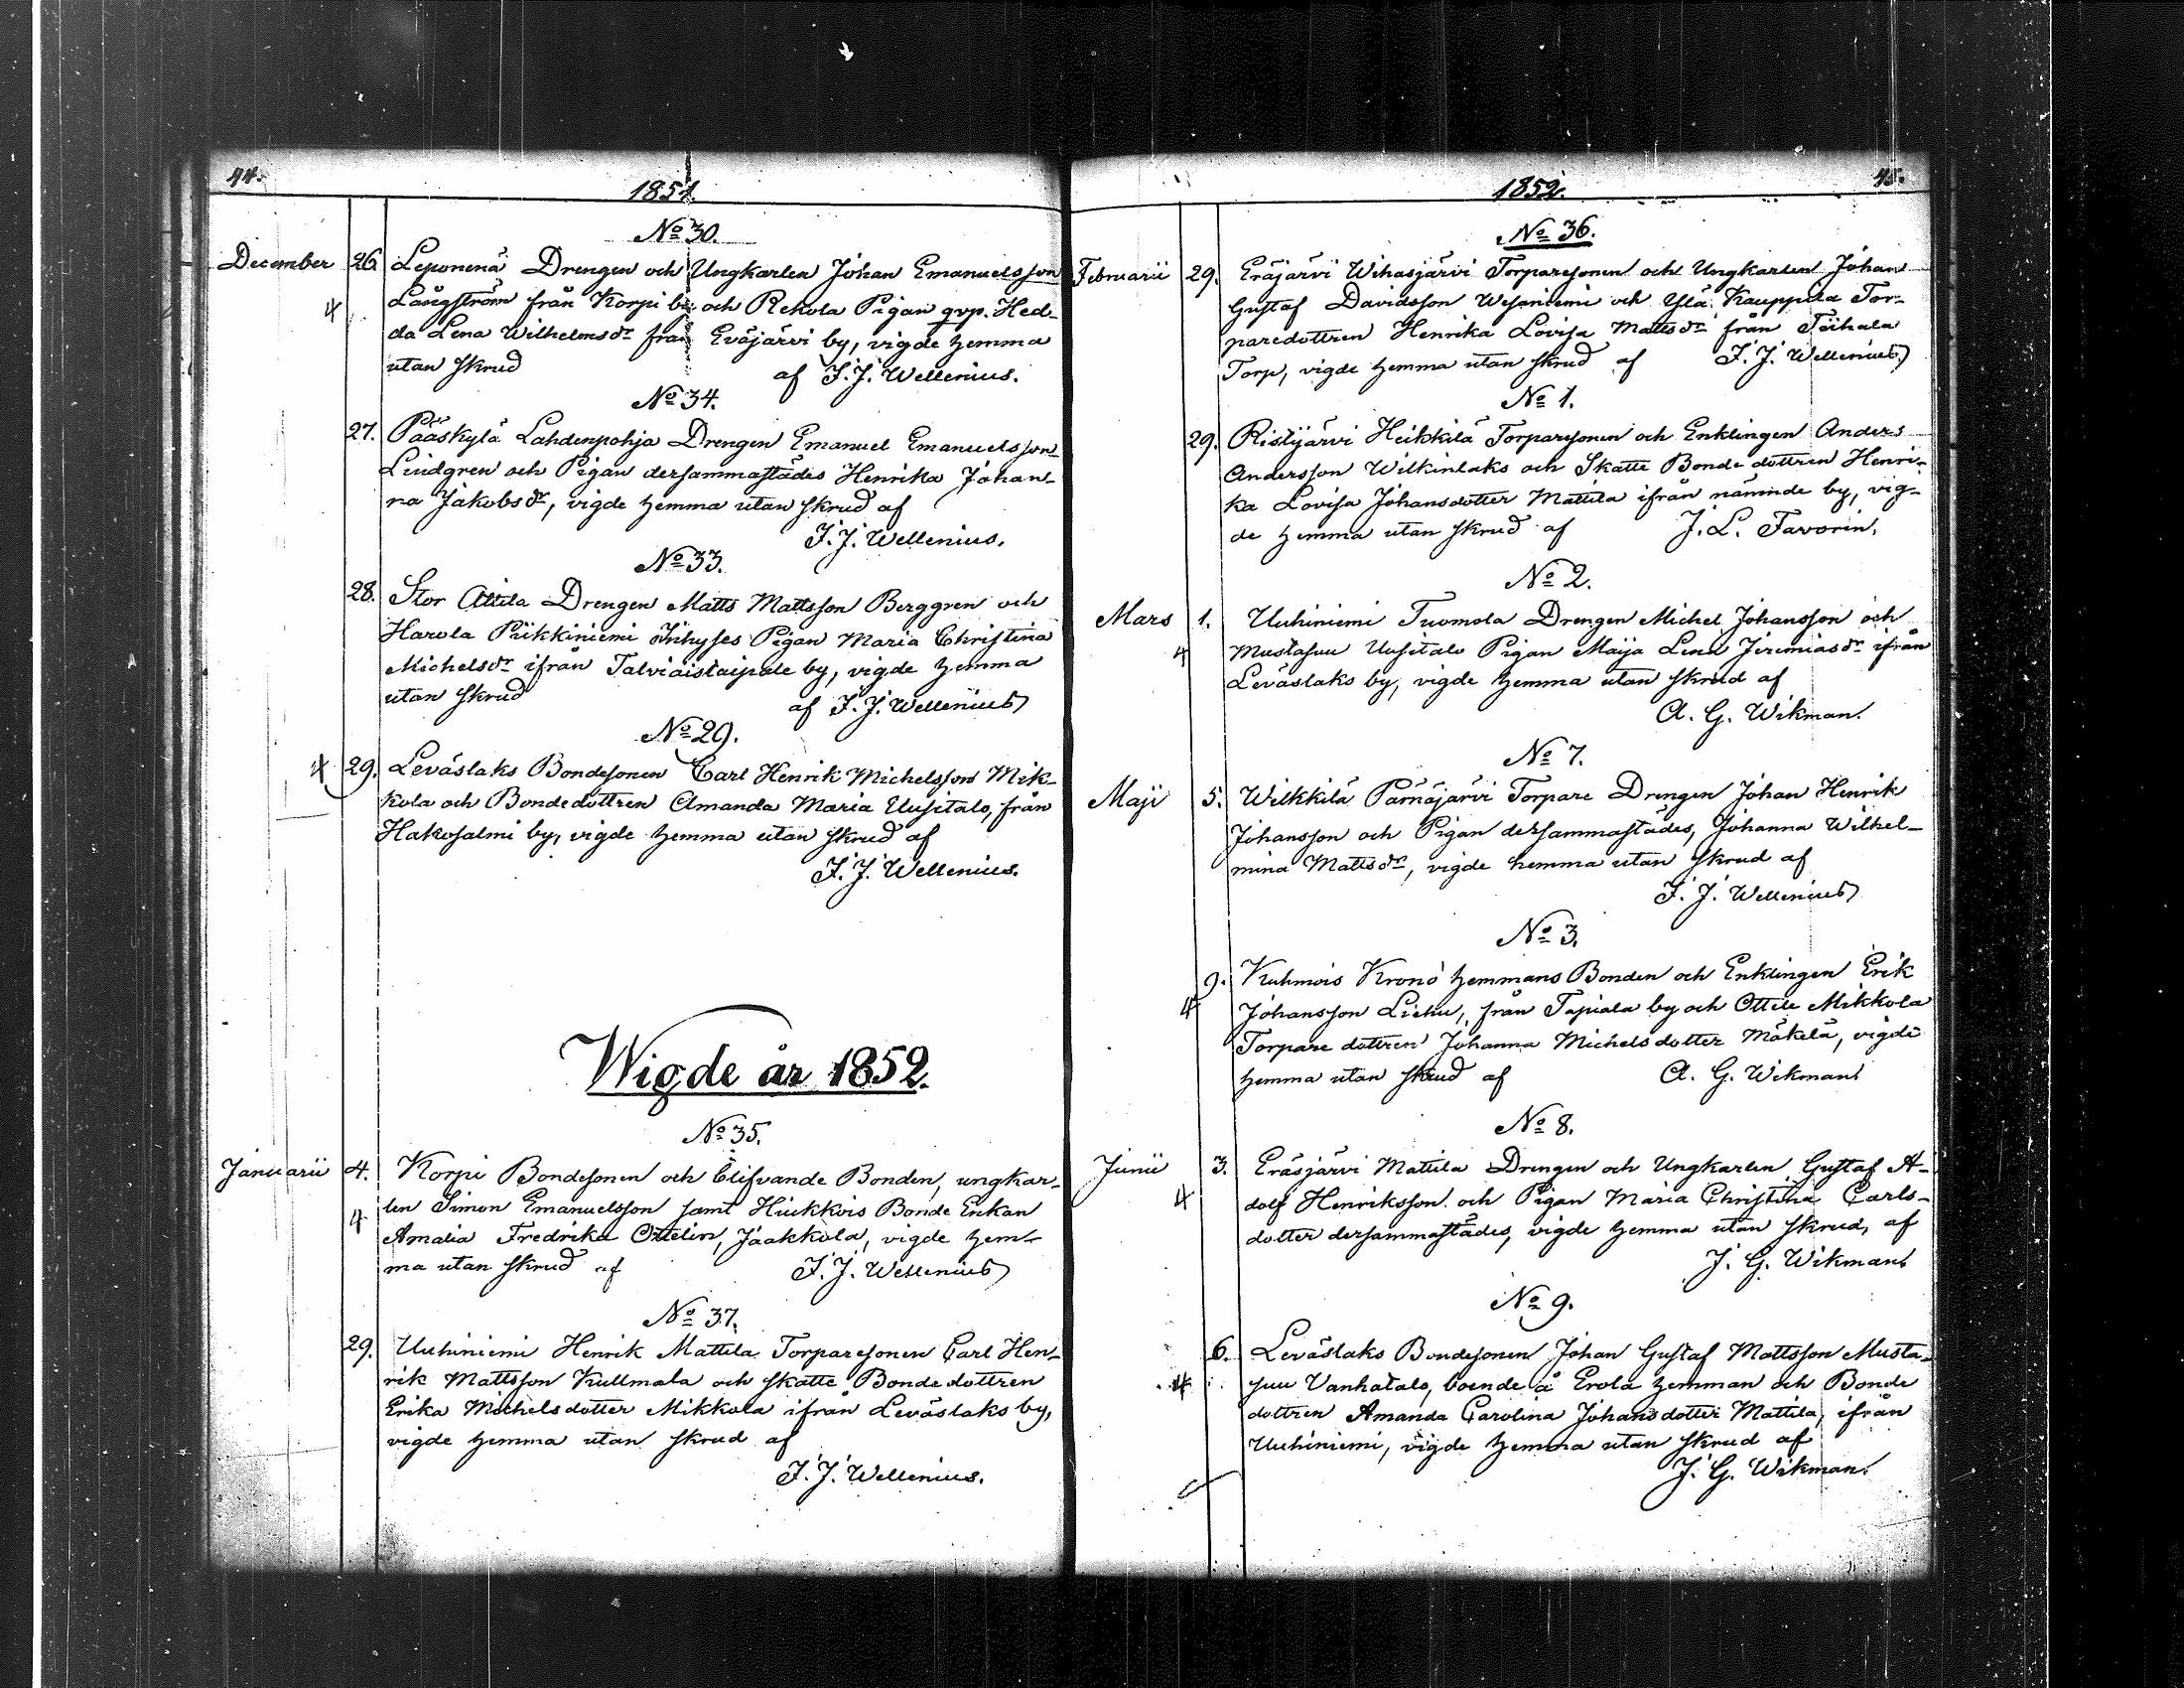 44.
1851.
No 30.
December 26. Leponenä Drengen och Ungkarlen Johan Emanuelsson
4 Långström från Korpi by och Rekola Pigan qvp. Hed-
da Lena Wilhelmsdr från Eväjärvi by, vigde hemma
utan skrud af F. J. Wellenius.
No 34.
27. Pääskylä Lahdenpohja Drengen Emanuel Emanuelsson
Lindgren och Pigan dersammastädes Henrika Johan-
na Jakobsdr, vigde hemma utan skrud af
F. J. Wellenius.
No 33.
28. Stor Attila Drengen Matts Mattsson Berggren och
Harola Piikkiniemi Inhyses Pigan Maria Christina
Michelsdr ifrån Talviaistaipale by, vigde hemma
utan skrud af F. J. Wellenius
No 29.
4 29. Leväslaks Bondesonen Carl Henrik Michelsson Mik-
kola och Bondedottren Amanda Maria Uusitalo, från
Hakosalmi by, vigde hemma utan skrud af
F. J. Wellenius.
Wigde år 1852.
No 35.
Januarii 4. Korpi Bondesonen och Blifvande Bonden, ungkar-
4 len Simon Emanuelsson samt Hiukkois Bonde Enkan
Amalia Fredrika Ottelin, Jaakkola, vigde hem-
ma utan skrud af F. J. Wellenius
No 37.
29. Uuhiniemi Henrik Mattila Torparesonen Carl Hen-
rik Mattsson Kullmala och Skatte Bonde dottren
Erika Michelsdotter Mikkola ifrån Leväslaks by,
vigde hemma utan skrud af
F. J. Wellenius.
45.
1852.
No 36.
Februarii 29. Eräjärvi Wihasjärvi Torparesonen och Ungkarlen Johan
Gustaf Davidsson Wesaniemi och Ylä Kauppila Tor-
paredottren Henrika Lovisa Mattsdr från Tiihala
Torp, vigde hemma utan skrud af F. J. Wellenius
No 1.
29. Ristijärvi Heikkilä Torparesonen och Enklingen Anders
Andersson Wilkinlaks och Skatte Bonde dottren Henri-
ka Lovisa Johansdotter Mattila ifrån nämnde by, vig-
de hemma utan skrud af J. L. Favorin.
No 2.
Mars 1. Uuhiniemi Tuomola Drengen Michel Johansson och
4 Mustasuu Uusitalo Pigan Maija Lena Jeremiasdr ifrån
Leväslaks by, vigde hemma utan skrud af
A. G. Wikman.
No 7.
Maji 5. Wilkkilä Pärnäjärvi Torpare Drengen Johan Henrik
Johansson och Pigan dersammastädes, Johanna Wilhel-
mina Mattsdr, vigde hemma utan skrud af
F. J. Wellenius
No 3.
9. Kuhmois Krono hemmans Bonden och Enklingen Erik
4 Johansson Liehu, från Tapiala by och Ottile Mikkola
Torpare dottren Johanna Michelsdotter Mäkelä, vigde
hemma utan skrud af A. G. Wikman
No 8.
Junii 3. Eräsjärvi Mattila Drengen och Ungkarlen Gustaf A-
4 dolf Henriksson och Pigan Maria Christina Carls-
dotter dersammastädes, vigde hemma utan skrud, af
J. G. Wikman
No 9.
6. Leväslaks Bondesonen Johan Gustaf Mattsson Musta-
4 suu Vanhatalo, boende å Erola hemman och Bonde
dottren Amanda Carolina Johansdotter Mattila, ifrån
Uuhiniemi, vigde hemma utan skrud af
J. G. Wikman.